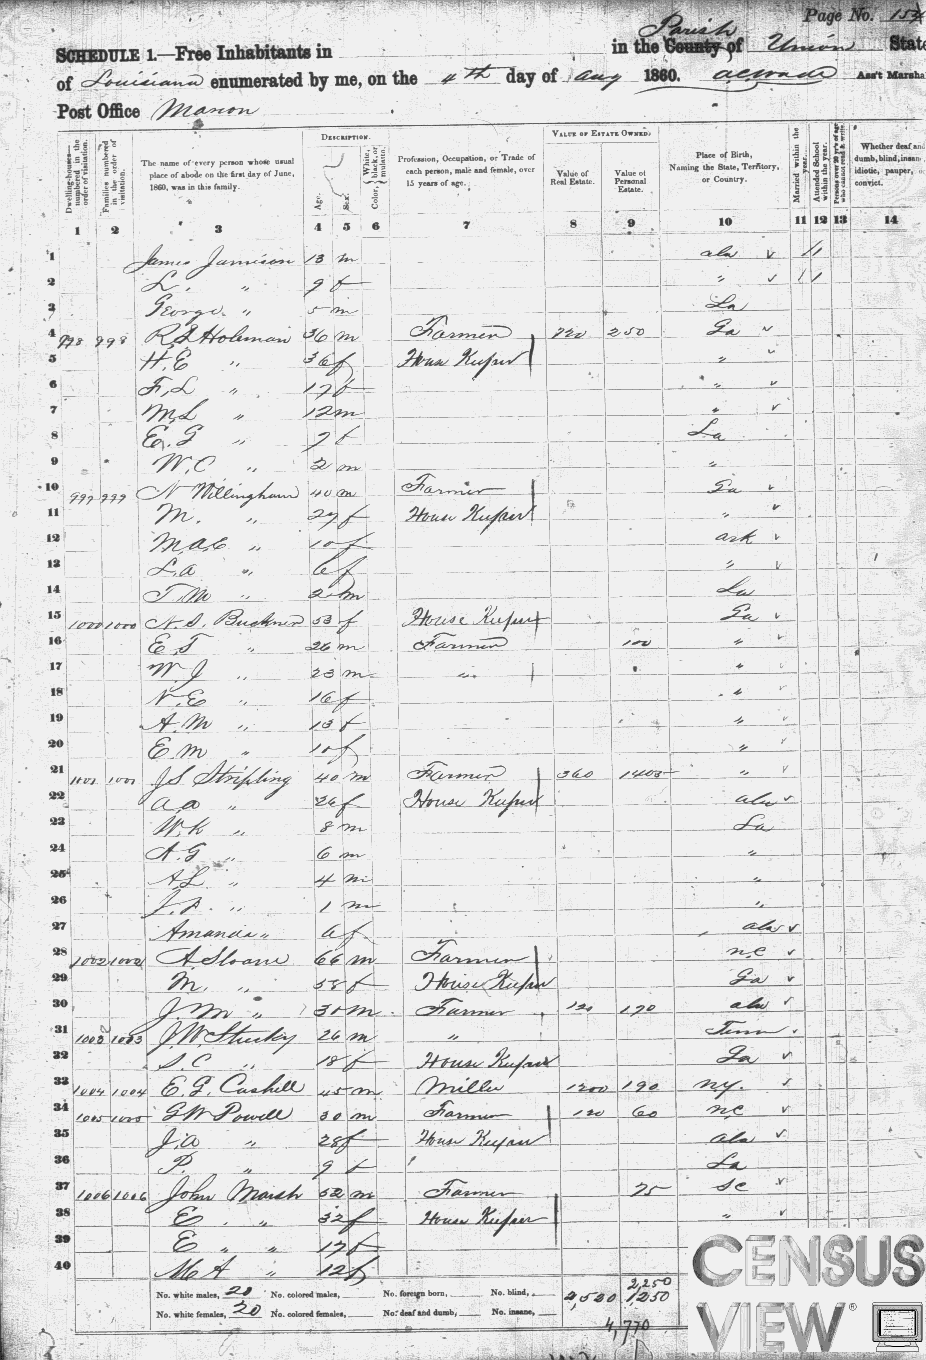 Page No. 154
SCHEDULE 1.—Free Inhabitants in in the County of Parish Union State
of Louisiana enumerated by me, on the 4th day of Aug 1860. Ass't Marshal
Post Office Marion
DESCRIPTION. VALUE OF ESTATE OWNED.
Dwelling-houses—numbered in the order of visitation. Families numbered in the order of visitation. The name of every person whose usual place of abode on the first day of June, 1860, was in this family. Age. Sex. Color, White, black, or mulatto. Profession, Occupation, or Trade of each person, male and female, over 15 years of age. Value of Real Estate. Value of Personal Estate. Place of Birth, Naming the State, Territory, or Country. Married within the year. Attended School within the year. Persons over 20 y'rs of age who cannot read & write. Whether deaf and dumb, blind, insane, idiotic, pauper, or convict.
1 2 3 4 5 6 7 8 9 10 11 12 13 14
1 James Jamison 13 m ala
2 L. " 9 f "
3 George " 5 m La
4 998 998 R.S. Holman 36 m Farmer 720 250 Ga
5 H.E " 36 f House Keeper "
6 F.L " 17 f "
7 M.L " 12 m "
8 E.G " 7 f La
9 W.C " 2 m "
10 999 999 N Willingham 40 m Farmer Ga
11 M. " 27 f House Keeper "
12 M.A.C " 10 f ark
13 L.A " 6 f "
14 T.M " 2 m La
15 1000 1000 N.S. Buckner 53 f House Keeper Ga
16 E.T " 26 m Farmer 100 "
17 W.J " 23 m " "
18 N.E " 16 f "
19 A.M " 13 f "
20 E.M " 10 f "
21 1001 1001 J.S. Stripling 40 m Farmer 360 1405 "
22 A.A " 26 f House Keeper ala
23 W.K " 8 m La
24 A.G " 6 m "
25 A.L " 4 m "
26 " 1 m "
27 Amanda " 6 f ala
28 1002 1002 A. Sloane 66 m Farmer NC
29 M. " 58 f House Keeper Ga
30 J.M " 30 m Farmer 120 170 ala
31 1003 1003 J.W. Stucky 26 m " Tenn
32 S.C " 18 f House Keeper Ga
33 1004 1004 E.G. Cashell 45 m Miller 1200 190 N.Y.
34 1005 1005 G.W. Powell 30 m Farmer 120 60 NC
35 J.A " 28 f House Keeper ala
36 P. " 9 f La
37 1006 1006 John Marsh 52 m Farmer 75 SC
38 E. " 32 f House Keeper "
39 E " " 17 f
40 M A " 12 f
No. white males, 20 No. colored males, No. foreign born, No. blind, 2,520 2,250 1250
No. white females, 20 No. colored females, No. deaf and dumb, No. insane,
4,770
CENSUS
VIEW®